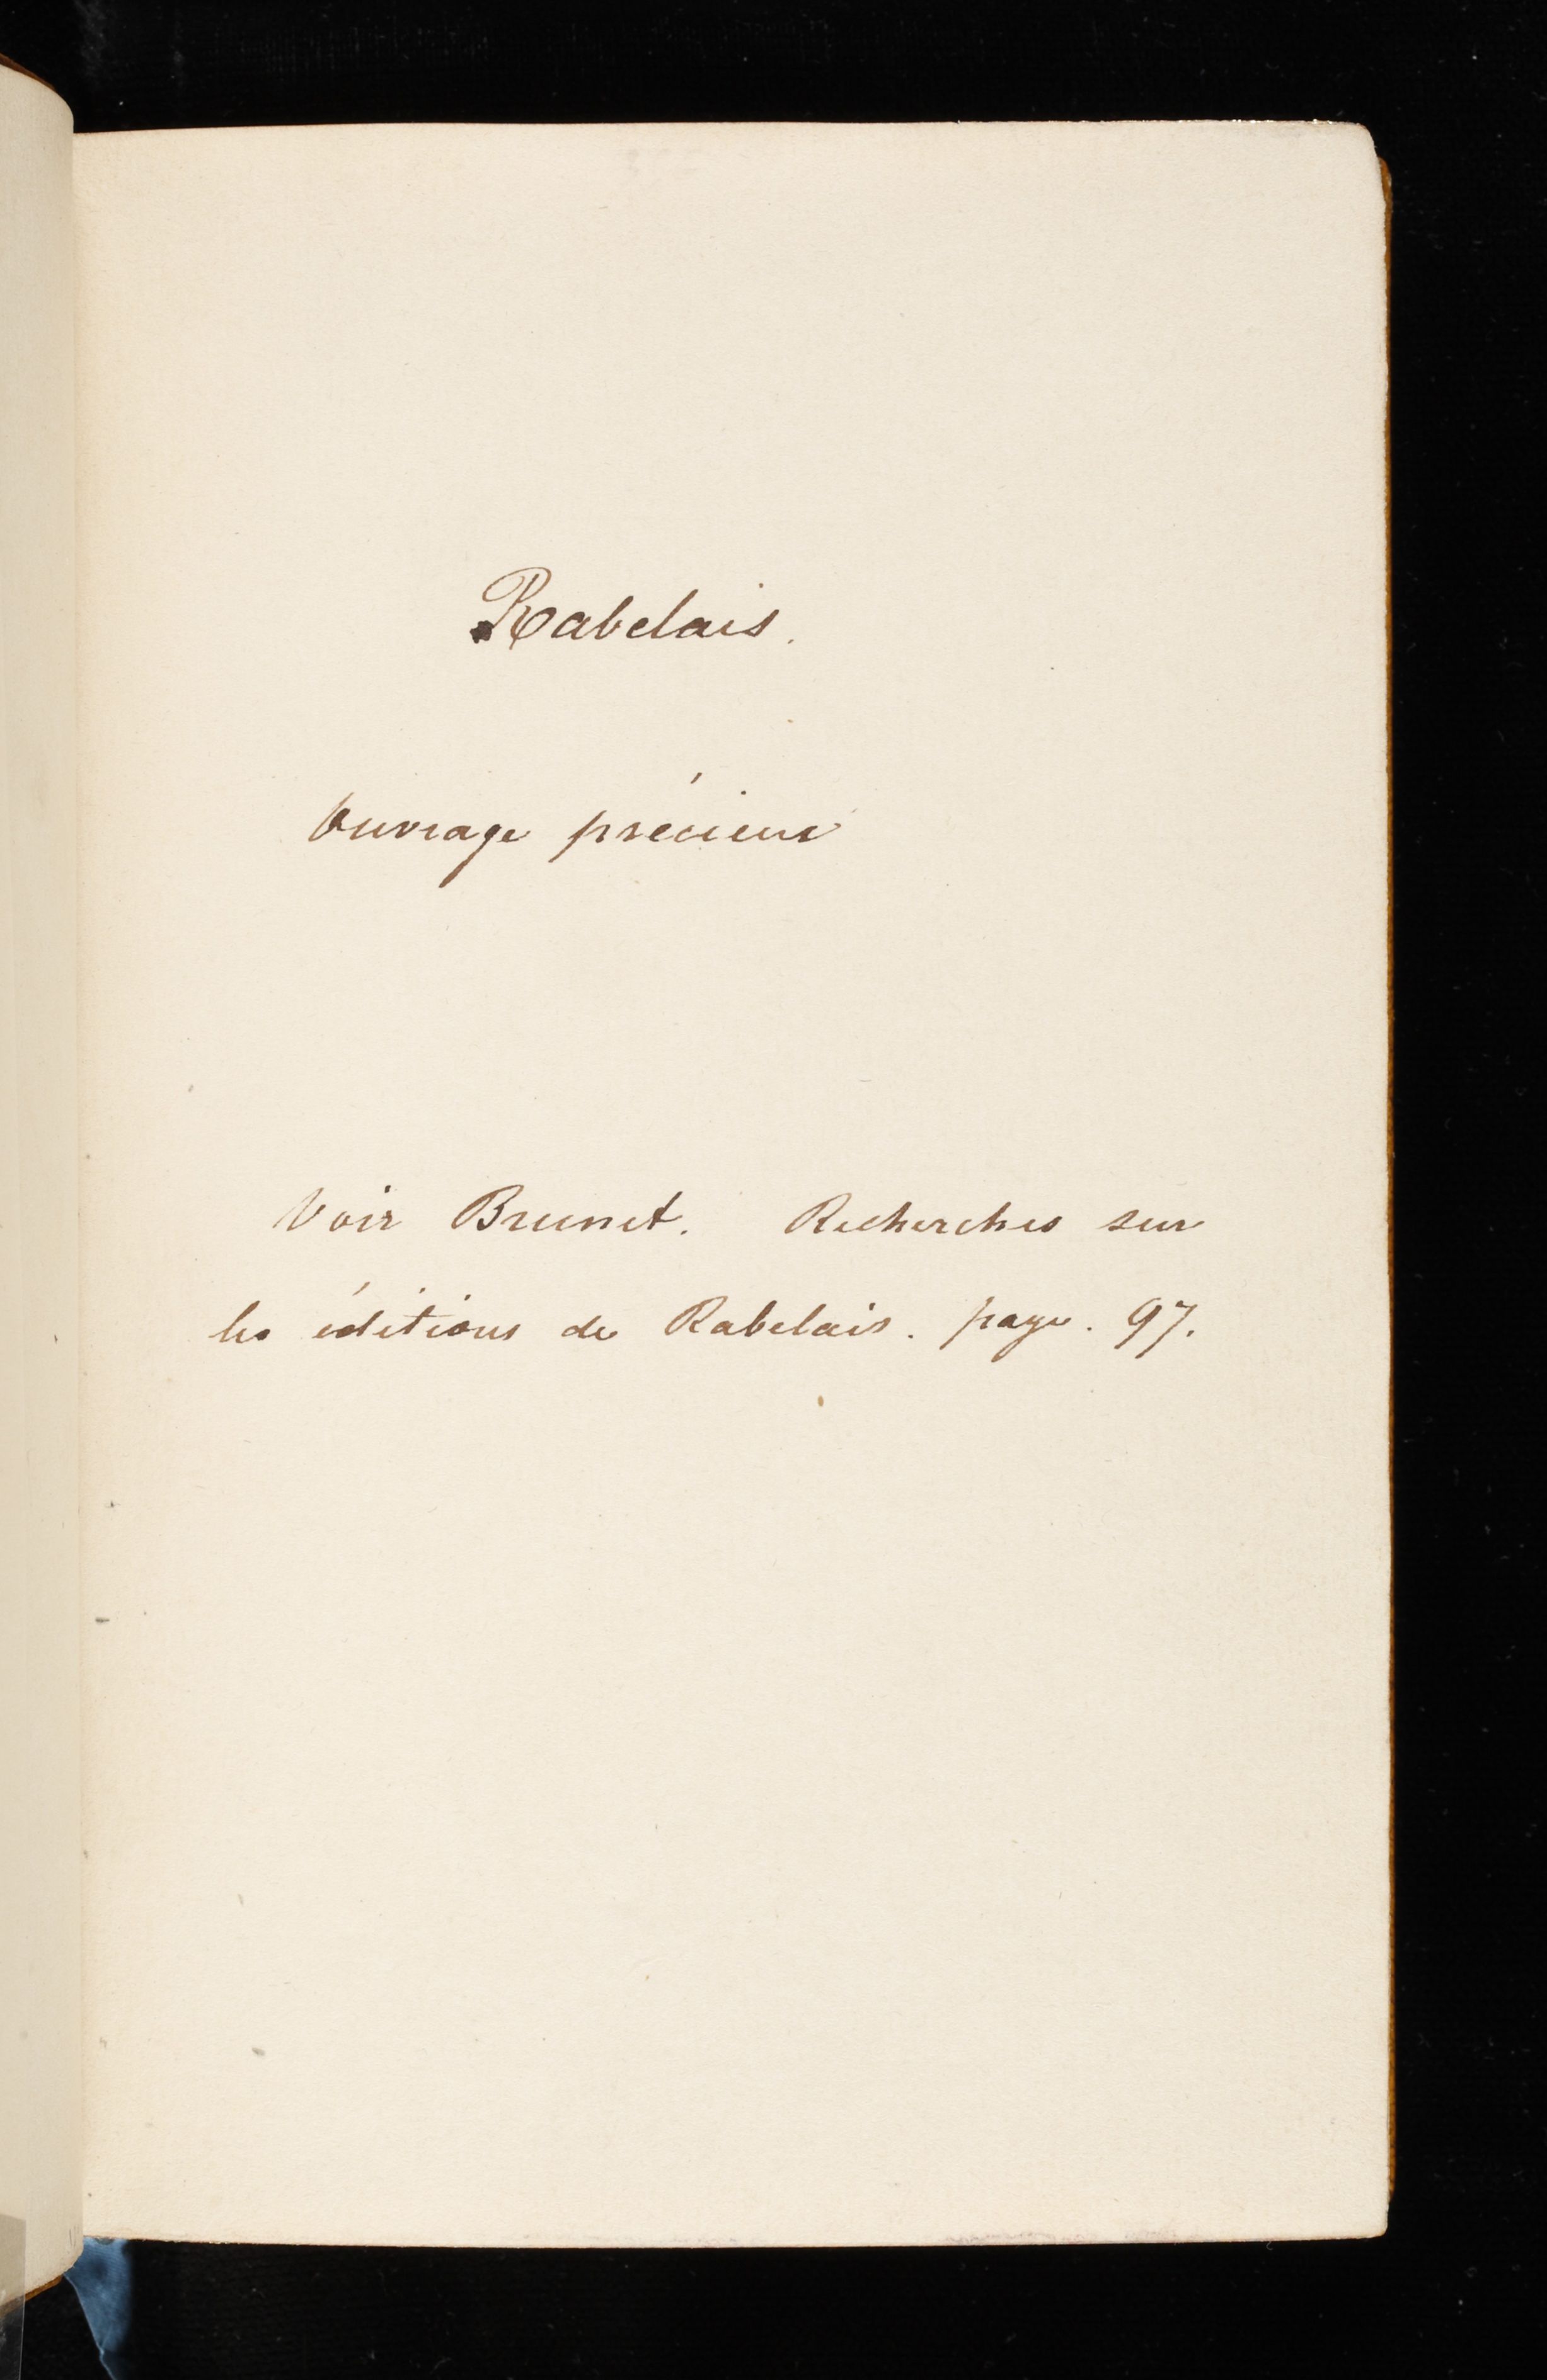 Rabelais.
Ouvrage précieux
Voir Brunet. Recherches sur
les éditions de Rabelais. page. 97.